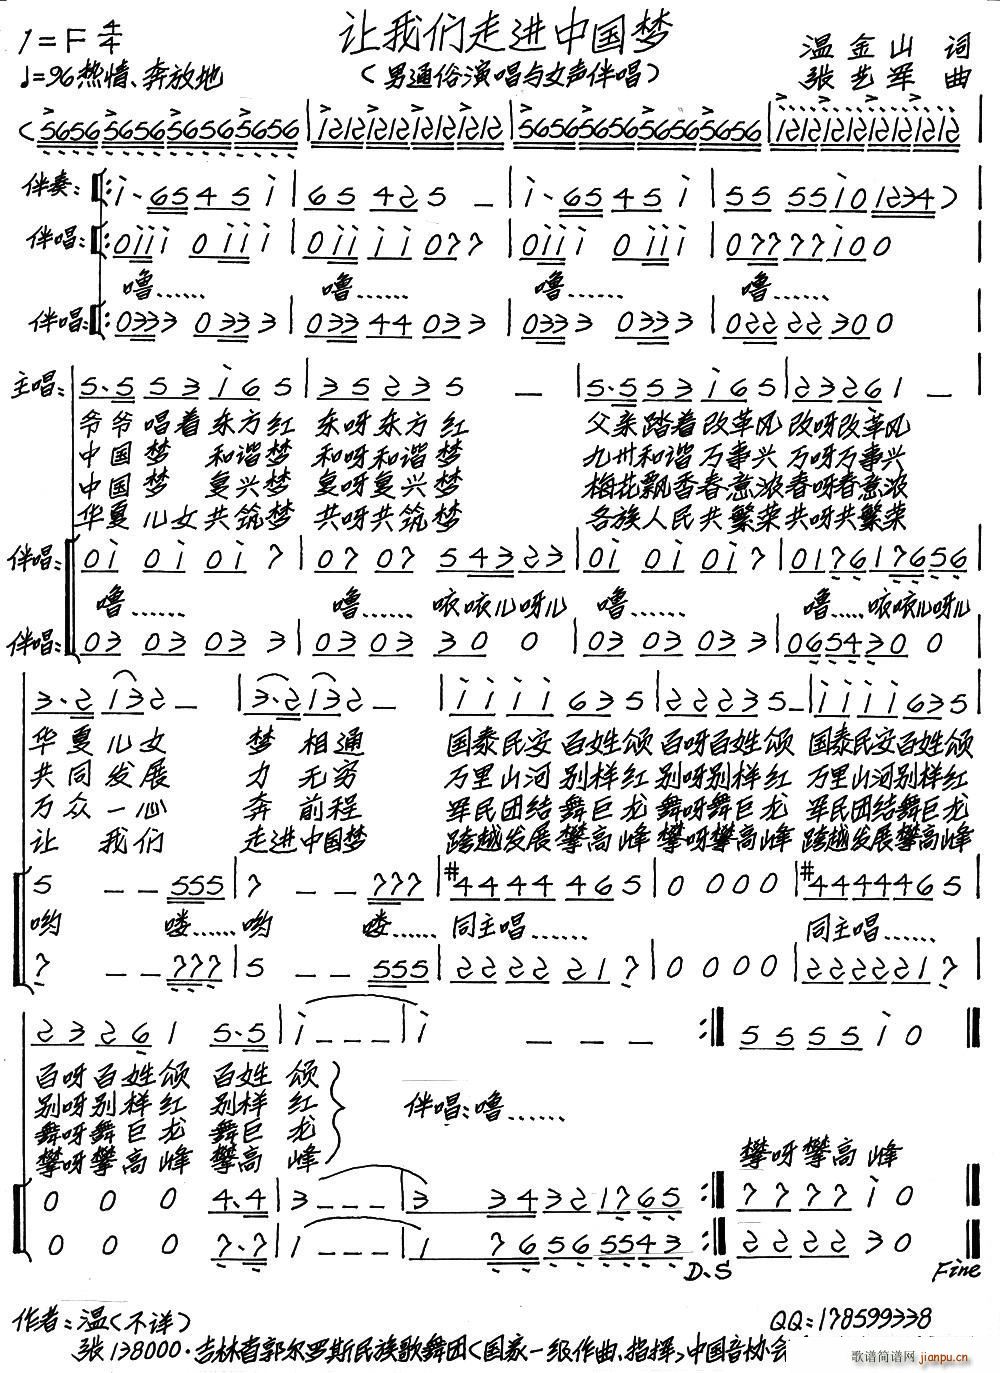 让我们走进中国梦
1=F 4/4
♩=96热情、奔放地
(男通俗演唱与女声伴唱)
温金山 词
张艺军 曲
(5656565656565656 | 1212121212121212 | 5656565656565656 | 1212121212121212 |
伴奏: ‖: i·65 45 i | 65 425 — | i·65 45 i | 55 55 i0 1234) |
伴唱: ‖: 0iii 0iii | 0iii ii 077 | 0iii 0iii | 07777 i00 |
噜…… 噜…… 噜…… 噜……
伴唱: ‖: 0333 0333 | 03344 033 | 0333 0333 | 02222 300 |
主唱: 5·5 53 i65 | 35 235 — | 5·5 53 i65 | 23 261 — |
爷爷唱着东方红 东呀东方红 父亲踏着改革风 改呀改革风
中国梦 和谐梦 和呀和谐梦 九州和谐万事兴 万呀万事兴
中国梦 复兴梦 复呀复兴梦 梅花飘香春意浓 春呀春意浓
华夏儿女共筑梦 共呀共筑梦 各族人民共繁荣 共呀共繁荣
伴唱: 0i 0i 0i 7 | 07 07 54323 | 0i 0i 0i 7 | 0176 17656 |
噜…… 噜…… 咴咴儿呀儿 噜…… 噜…… 咴咴儿呀儿
伴唱: 03 03 03 3 | 03 03 30 0 | 03 03 03 3 | 0654 30 0 |
3·2 132 — | 3·2 132 — | iiii 635 | 2222 35 — | iiii 635 |
华夏儿女 梦相通 国泰民安百姓颂 百呀百姓颂 国泰民安百姓颂
共同发展 力无穷 万里山河别样红 别呀别样红 万里山河别样红
万众一心 奔前程 军民团结舞巨龙 舞呀舞巨龙 军民团结舞巨龙
让我们 走进中国梦 跨越发展攀高峰 攀呀攀高峰 跨越发展攀高峰
5 — — 555 | 7 — — 777 | #4444 465 | 0000 | #4444 465 |
哟 喽…… 哟 喽…… 同主唱…… 同主唱……
7 — — 777 | 5 — — 555 | 2222 217 | 0000 | 2222 217 |
23 26 1 5·5 | i — — — | i — — — :‖ 5555 i0 ‖
百呀百姓颂 百姓颂
别呀别样红 别样红
舞呀舞巨龙 舞巨龙
攀呀攀高峰 攀高峰
伴唱:噜……
攀呀攀高峰
0 0 0 4·4 | 3 — — — | 3 3432 1765 :‖ 7777 i0 ‖
0 0 0 7·7 | 1 — — — | 1 7656 5543 :‖ 2222 30 ‖
D.S
Fine
作者:温(不详)
QQ:178599338
张138000·吉林省郭尔罗斯民族歌舞团(国家一级作曲、指挥)中国音协会
歌谱简谱网 jianpu.cn